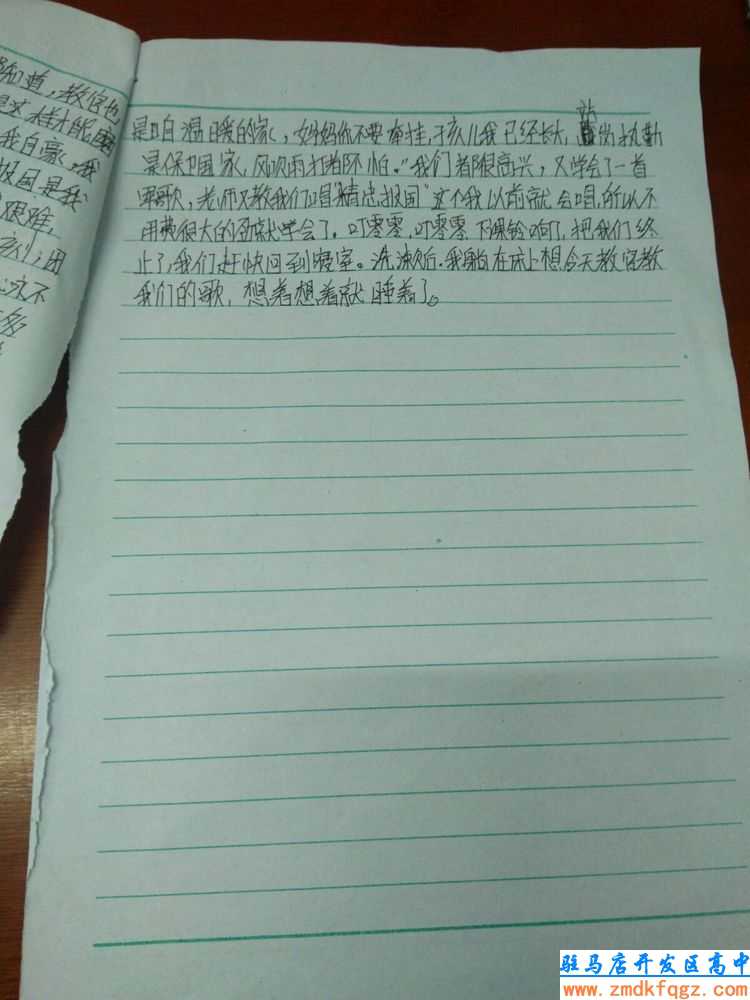 知道，教官也
是这样才能
我自豪，我
报国是我
艰难，
是咱温暖的家，妈妈你不要牵挂，孩儿我已经长大，站岗执勤
是保卫国家，风吹雨打都不怕。"我们都很高兴，又学会了一首
军歌，老师又教我们唱"精忠报国"这个我以前就会唱，所以不
用费很大的劲就学会了。叮零零，叮零零下课铃响了，把我们终
止了，我们赶快回到寝室。洗漱后，我躺在床上想今天教官教
我们的歌，想着想着就睡着了。
驻马店开发区高中
www.zmdkfqgz.com